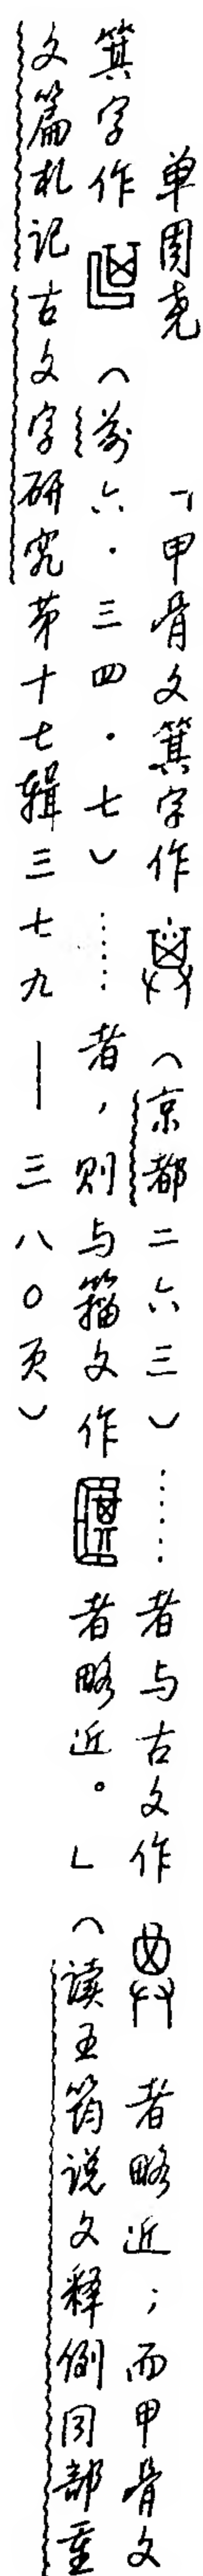 单周尧 「甲骨文箕字作（京都二六三）……者与古文作 者略近；而甲骨文
箕字作（前六·三四·七）……者，则与籀文作 者略近。」（读王筠说文释例同部重
文篇札记古文字研究第十七辑三七九—三八〇页）